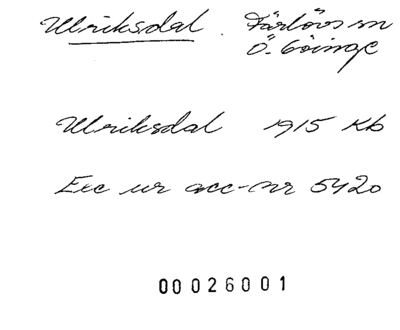 Ulriksdal. Färlövs sn
Ö. Göinge
Ulriksdal 1915 Kb
Exc ur acc-nr 5420
00026001